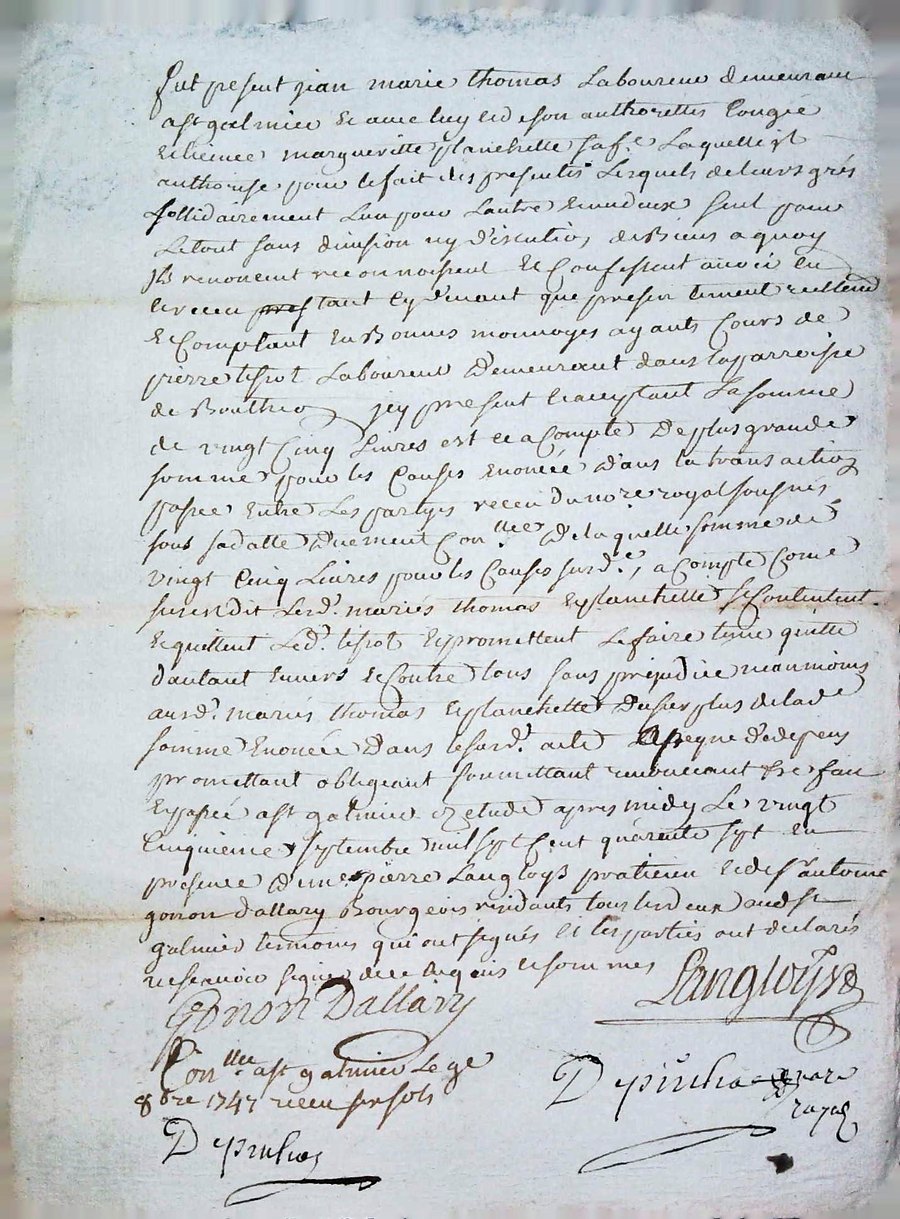 fut present jean marie thomas Laboureur demeurant
a st galmier et avec luy et de son authorette congée
et licence margueritte planchette sa f.e Laquelle il
authorise pour le fait des presentes Lesquels de leurs grés
sollidairement Lun pour Lautre un deux seul pour
Le tout sans division ny discution de Biens a quoy
Ils renoncent reconnoissent et Confessent avoir eu
et receu tant cy devant que presentement reellement
et Comptant en Bonnes monnoyes ayants Cours de
pierre tissot Laboureur Demeurant dans la parroisse
de Bouthéo jcy present et acceptant La somme
de vingt Cinq Livres est ce a Compte De plus grande
somme pour les Causes enoncée Dans la transaction
passée Entre Les partyes receu du no.re royal sousné
sous sa datte Duement Con.llée De laquelle somme de
vingt Cinq Livres pour les Causes surd.es a Compte Come
surendit Lesd. mariés thomas et planchette se Contentent
et quittent Led. tissot et promettent Le faire tenir quitte
dautant envers et Contre tous sans préjudice neanmoins
ausd. mariés thomas et planchette Du surplus de lad
somme Enoncée Dans le surd. acte a peyne de depens
promettant obligeant soumettant renonceant &c fait
et passé a st galmier ez etude apres midy Le vingt
Cinquieme septembre mil sept Cent quarente sept en
presence D'me pierre Langloys praticien et de sr antoine
gonon dallary Bourgeois residants tous les deux aud st
galmier temoins qui ont signés et les parties ont déclarés
ne scavoir signer de ce enquis et sommes
Gonon Dallary Langloys
Con.llé a st galmier Le 9e
8bre 1747 receu six sols
Depinhac no.re
royal
Depinhac